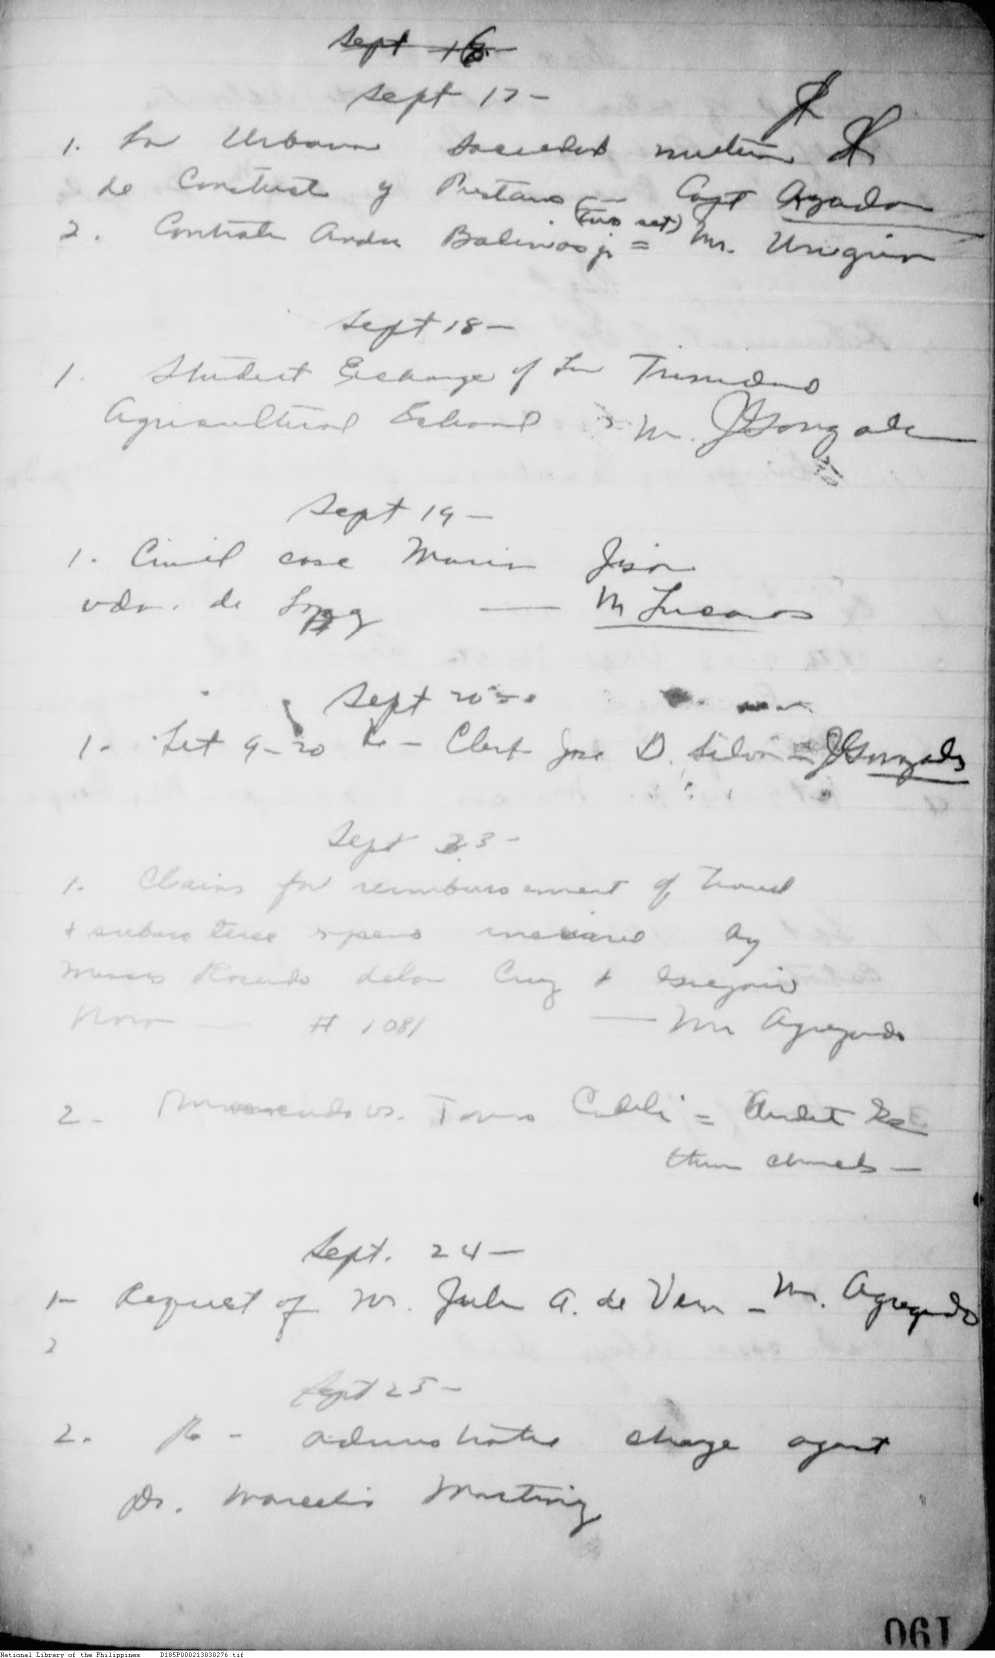 Sept 16
Sept 17 -
1. La Urbana Sociedad mutua
de Construct y Prestamo - Capt
(two set)
2. Contrata Balinas jr = Mr.
Sept 18 -
1. Student Exchange of La Trinidad
Agricultural School - M. J Gonzales
Sept 19 -
1. Civil case Maria Jison
vda. de — M Lucaros
Sept 20
1- Let 9-20 - Clerk Jose D. Silva = J Gonzales
Sept 23 -
1. Claims for reimbursement of travel
+ subsistence incurred by
Messrs Rosendo dela Cruz + Gregorio
# 1081 — Mr Agregado
2 - vs. = Audit Re
them
Sept. 24 -
1- Request of Mr. Julio A. de Vera - Mr. Agregado
2
Sept 25 -
2. Re - administrative charge agent
Dr. Marcelo
190
National Library of the Philippines D185P000213838276.tif